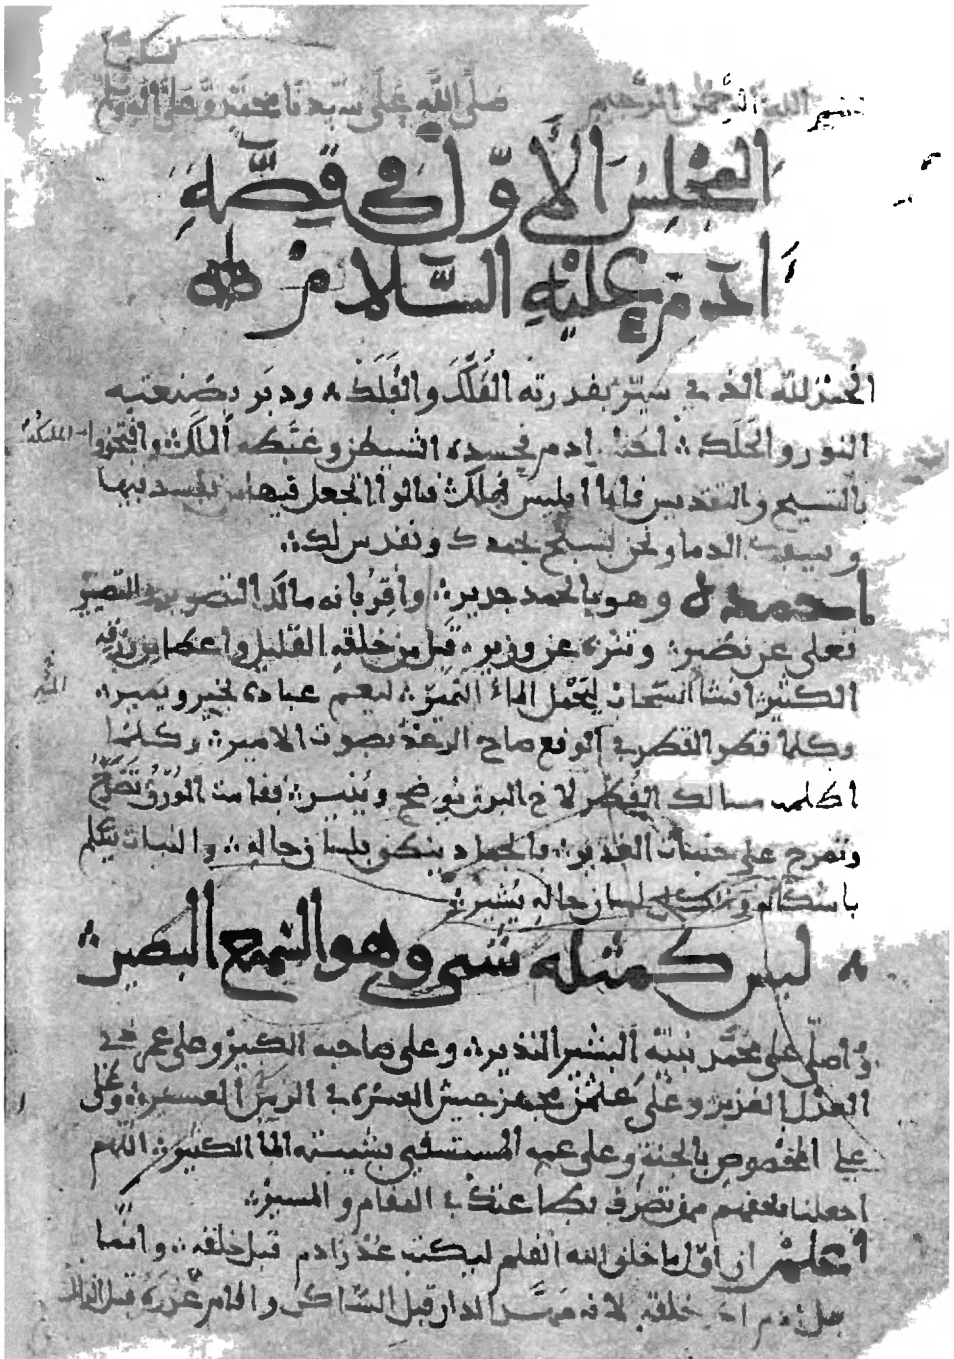 بسم الله الرحمن الرحيم صلى الله على سيدنا محمد وعلى آله وسلم
المجلس الأول في قصة
آدم عليه السلام
الحمد لله الذي سير بقدرته الفلك والفلك ودبر بصنعته
النور والحلك اختار آدم فحسده الشيطان وغبطه الملك وافتخروا الملائكة
بالتسبيح والتقديس فأما إبليس فهلك قالوا أتجعل فيها من يفسد فيها
ويسفك الدما ونحن نسبح بحمدك ونقدس لك
أحمده وهو بالحمد جدير وأقر بأنه مالك التصوير والتصيير
تعلى عن نصير وتنزه عن وزير قبل من خلقه القليل وأعطا من رزقه
الكثير أنشأ السحاب يحمل الماء النمير ليعم عباده بخير ويمير
وكلما قطر القطر في الوقع صاح الرعد بصوت الأمير وكلما
أظلمت مسالك القطر لاح البرق يوضح وينير فقامت الورق تصدح
وتمرح على جنبات الغدير فالجماد ينطق بلسان حاله والنبات يتكلم
باشكاله و لسان حاله يشير
ليس كمثله شي وهو السميع البصير
وأصلي على محمد نبيه البشير النذير وعلى صاحبه الكبير وعلى عمر في
العدل الغزير وعلى عثمن مجهز جيش العسرة في الزمن العسير وعلى
علي المخصوص بالجنة وعلى عمه المستسقى بشيبته الما الكثير اللهم
اجعلنا بحقهم ممن تصرف عندك في المقام والمسير
اعلم أن أول ما خلق الله القلم ليكتب عذر آدم قبل خلقه وانما
خلقه لانه الدار قبل الساكن وأقام عذره قبل الزلل